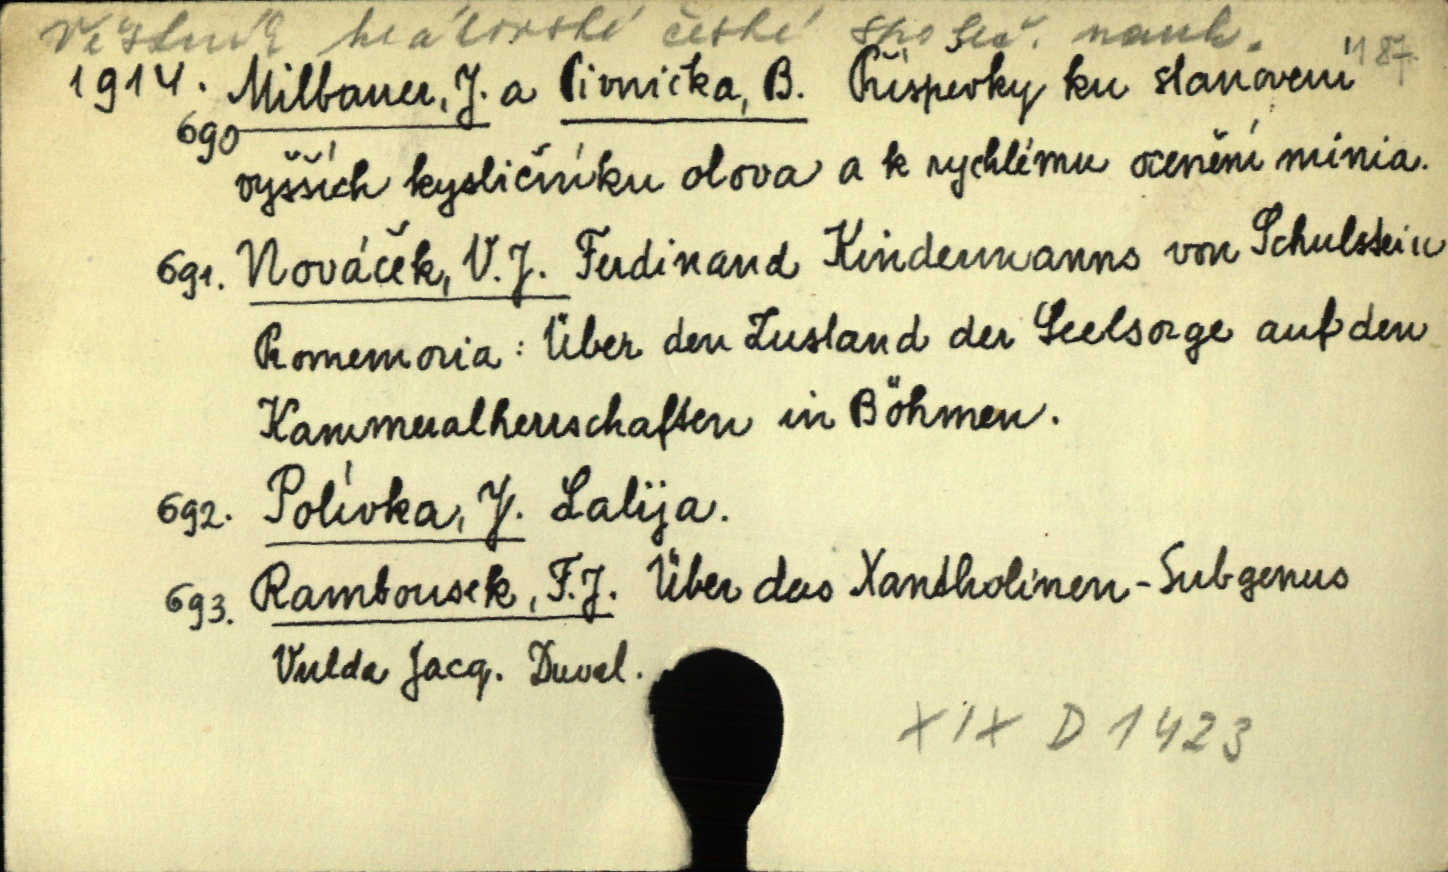 Věstník královské české společ. nauk. 187.
1914. Milbauer, J. a Pivnička, B. Příspěvky ku stanovení
690 vyšších kysličníku olova a k rychlému ocenění minia.
691. Nováček, V. J. Ferdinand Kindermanns von Schulstein
Promemoria: Über den Zustand der Seelsorge auf den
Kammeralherrschaften in Böhmen.
692. Polívka, J. Lalija.
693. Rambousek, F. J. Über das Xantholinen-Subgenus
Vulda Jacq. Duval.
XIX D 1423